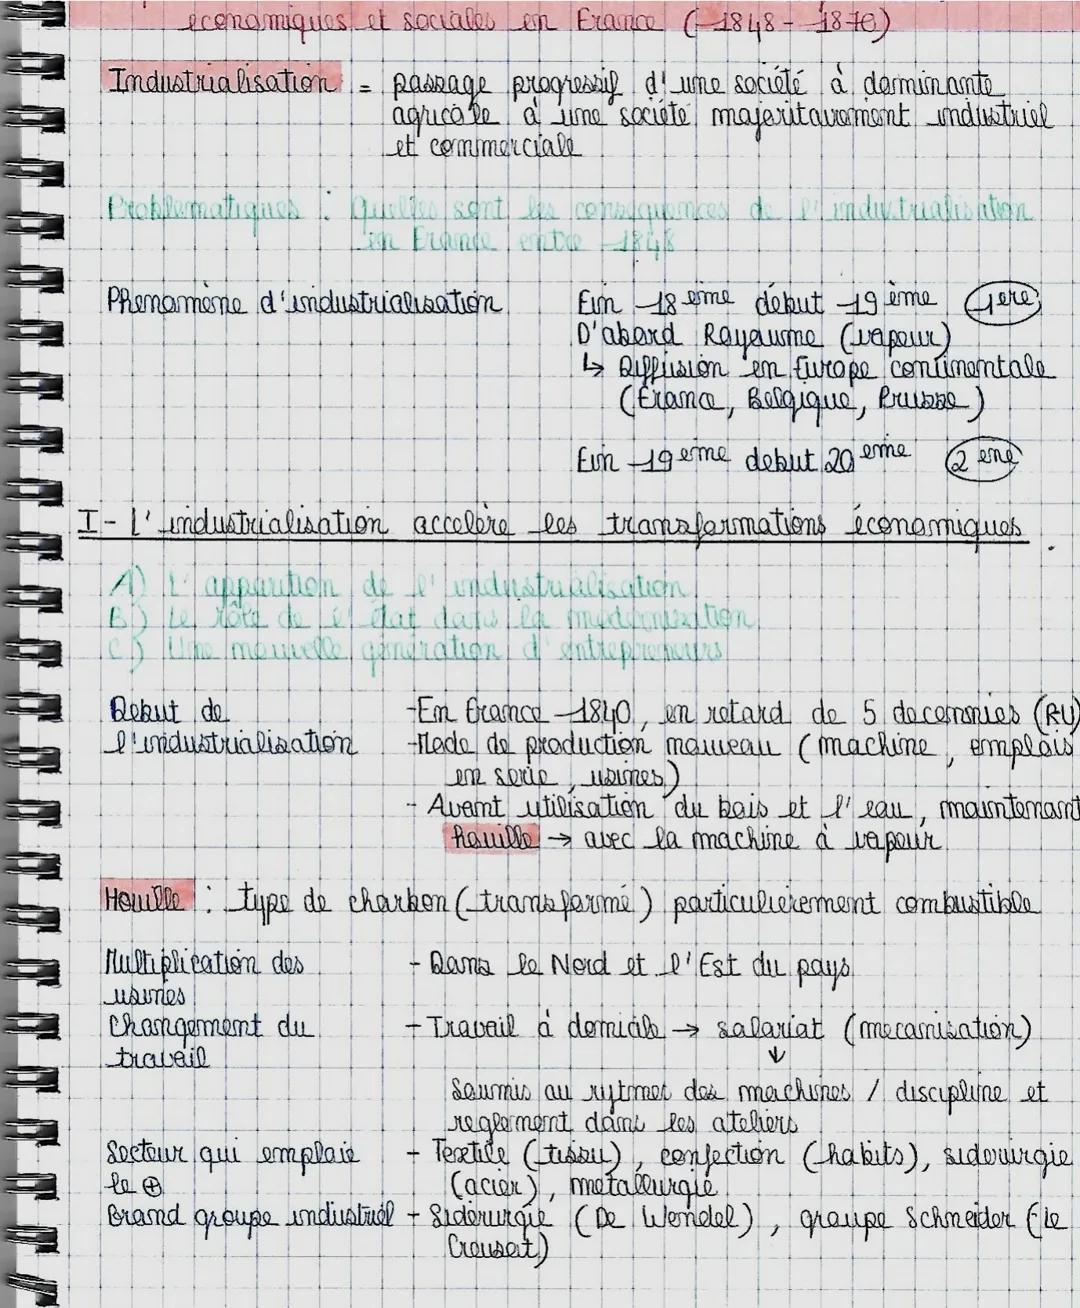 économiques et sociales en France (1848-1870)
Industrialisation = passage progressif d'une société à dominante
agricole à une société majoritairement industriel
et commerciale
Problematiques : Quelles sont les consequences de l'industrialisation
en France entre 1848
Phenomène d'industrialisation
Fin 18 eme début 19 ème (1ere)
D'abord Royaume (vapeur)
↳ Diffusion en Europe continentale
(France, Belgique, Prusse)
Fin 19 eme debut 20 eme (2 eme)
I- L'industrialisation accelère les transformations économiques
A) L'apparition de l'industrialisation
B) Le rôle de l'état dans la modernisation
C) Une nouvelle génération d'entrepreneurs
Debut de
l'industrialisation
-En France 1840, en retard de 5 decennies (RU)
-Mode de production nouveau (machine, emplois
en serie, usines)
- Avant utilisation du bois et l'eau, maintenant
houille → avec la machine à vapeur
Houille : type de charbon (transformé) particulierement combustible
Multiplication des
usines
- Dans le Nord et l'Est du pays
Changement du
travail
- Travail à domicile → salariat (mecanisation)
↓
Soumis au rytmes des machines / discipline et
reglement dans les ateliers
Secteur qui emploie
le ⊕
- Textile (tissu), confection (habits), siderurgie
(acier), metallurgie
Grand groupe industriel - Siderurgie (De Wendel), groupe Schneider (le
Creusot)